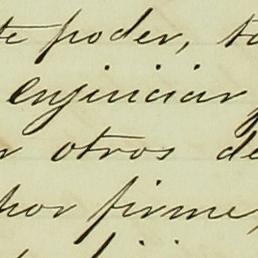 te poder, ta
enjuiciar
r otros de
por firme,